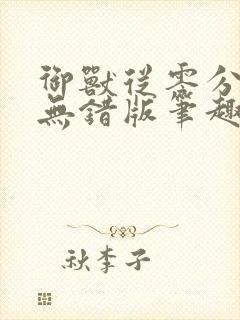 御獸從零分
無錯版筆趣
秋李子